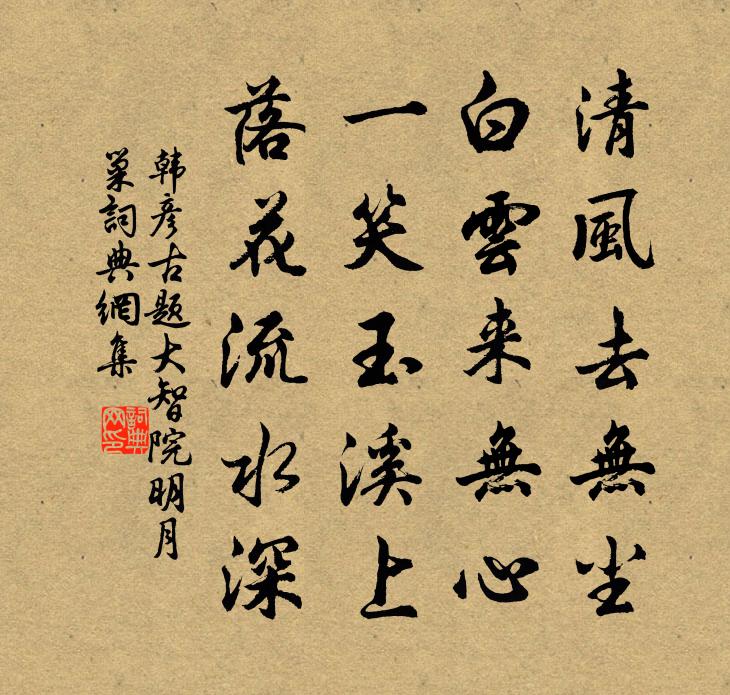 清風去無尘
白雲来無心
一笑玉溪上
落花流水深
韩彦古题大智院明月
巢詞典網集
詞典
网印